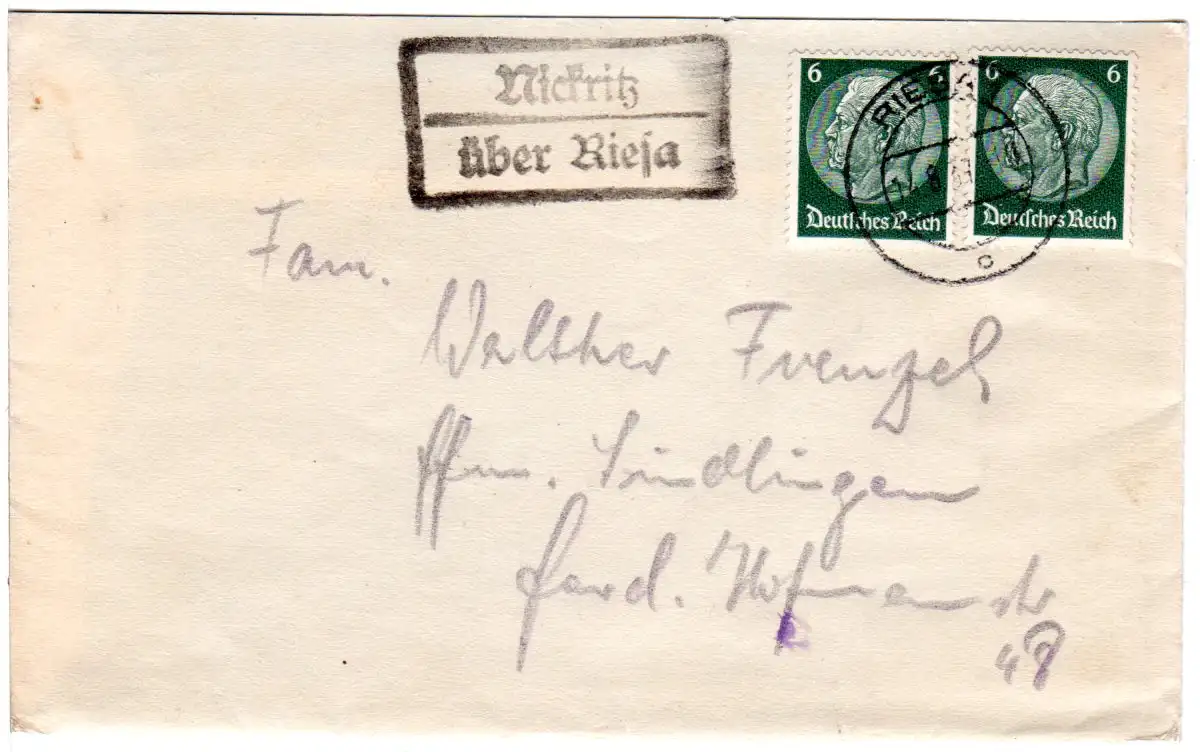 Nickritz
über Riesa
6 6
Deutsches Reich
6 6
Deutsches Reich
RIESA
c
Fam.
Walther Frenzel
Ffm. Sindlingen
Ferd. Hofmannstr
48